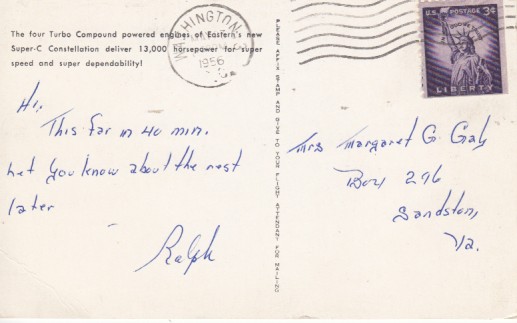 The four Turbo Compound powered engines of Eastern's new
Super-C Constellation deliver 13,000 horsepower for super
speed and super dependability!
WASHINGTON
1956
D.C.
U.S. POSTAGE 3¢
LIBERTY
Hi,
This far in 40 min.
Let you know about the rest
later
Ralph
PLEASE AFFIX STAMP AND GIVE TO YOUR FLIGHT ATTENDANT FOR MAILING
Mrs Margaret G. Galy
Box 296
Sandston,
Va.